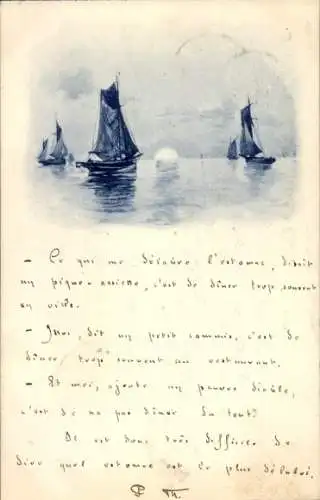 - Ce qui me délabre l'estomac, disait
un pique-assiette, c'est de dîner trop souvent
en ville.
- Moi, dit un petit commis, c'est de
dîner trop souvent au restaurant.
- Et moi, ajoute un pauvre diable,
c'est de ne pas dîner du tout!
Il est donc très difficile de
dire quel estomac est le plus délabré.
P Th.